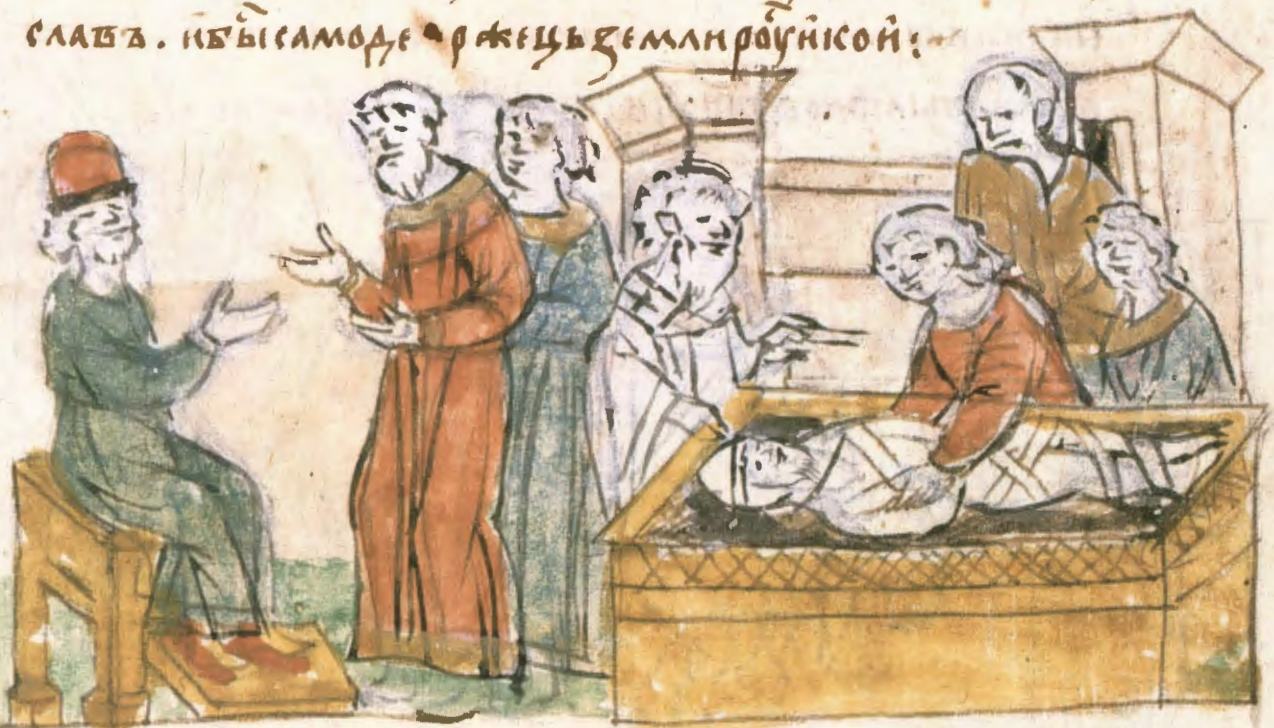 славъ. и бы͡с самодержець земли роу͡сйской: